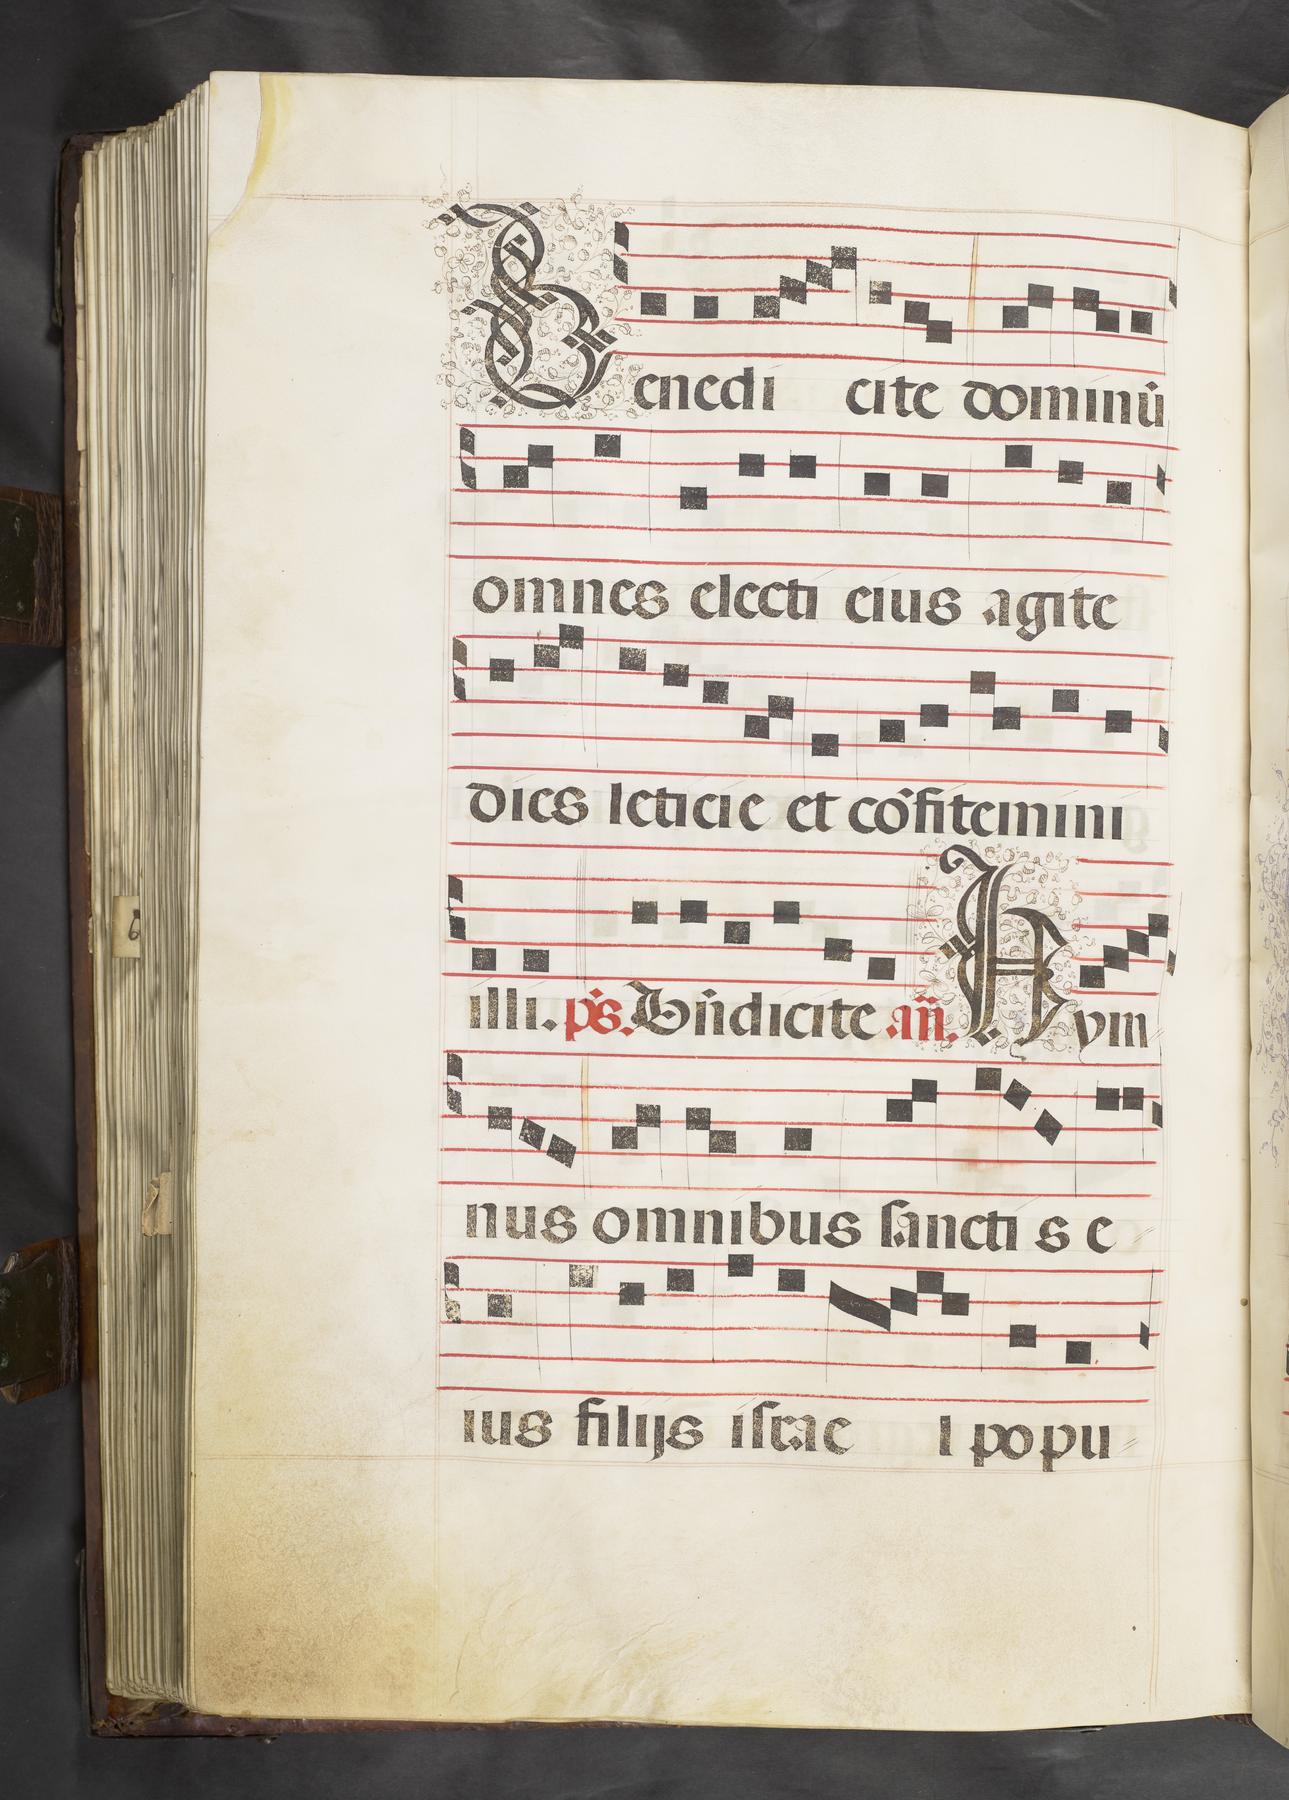 Benedi cite dominū
omnes electi eius agite
dies leticie et cōfitemini
illi. ps. Bn̄dicite an̄. Hym
nus omnibus sancti s e
ius filijs israe l popu